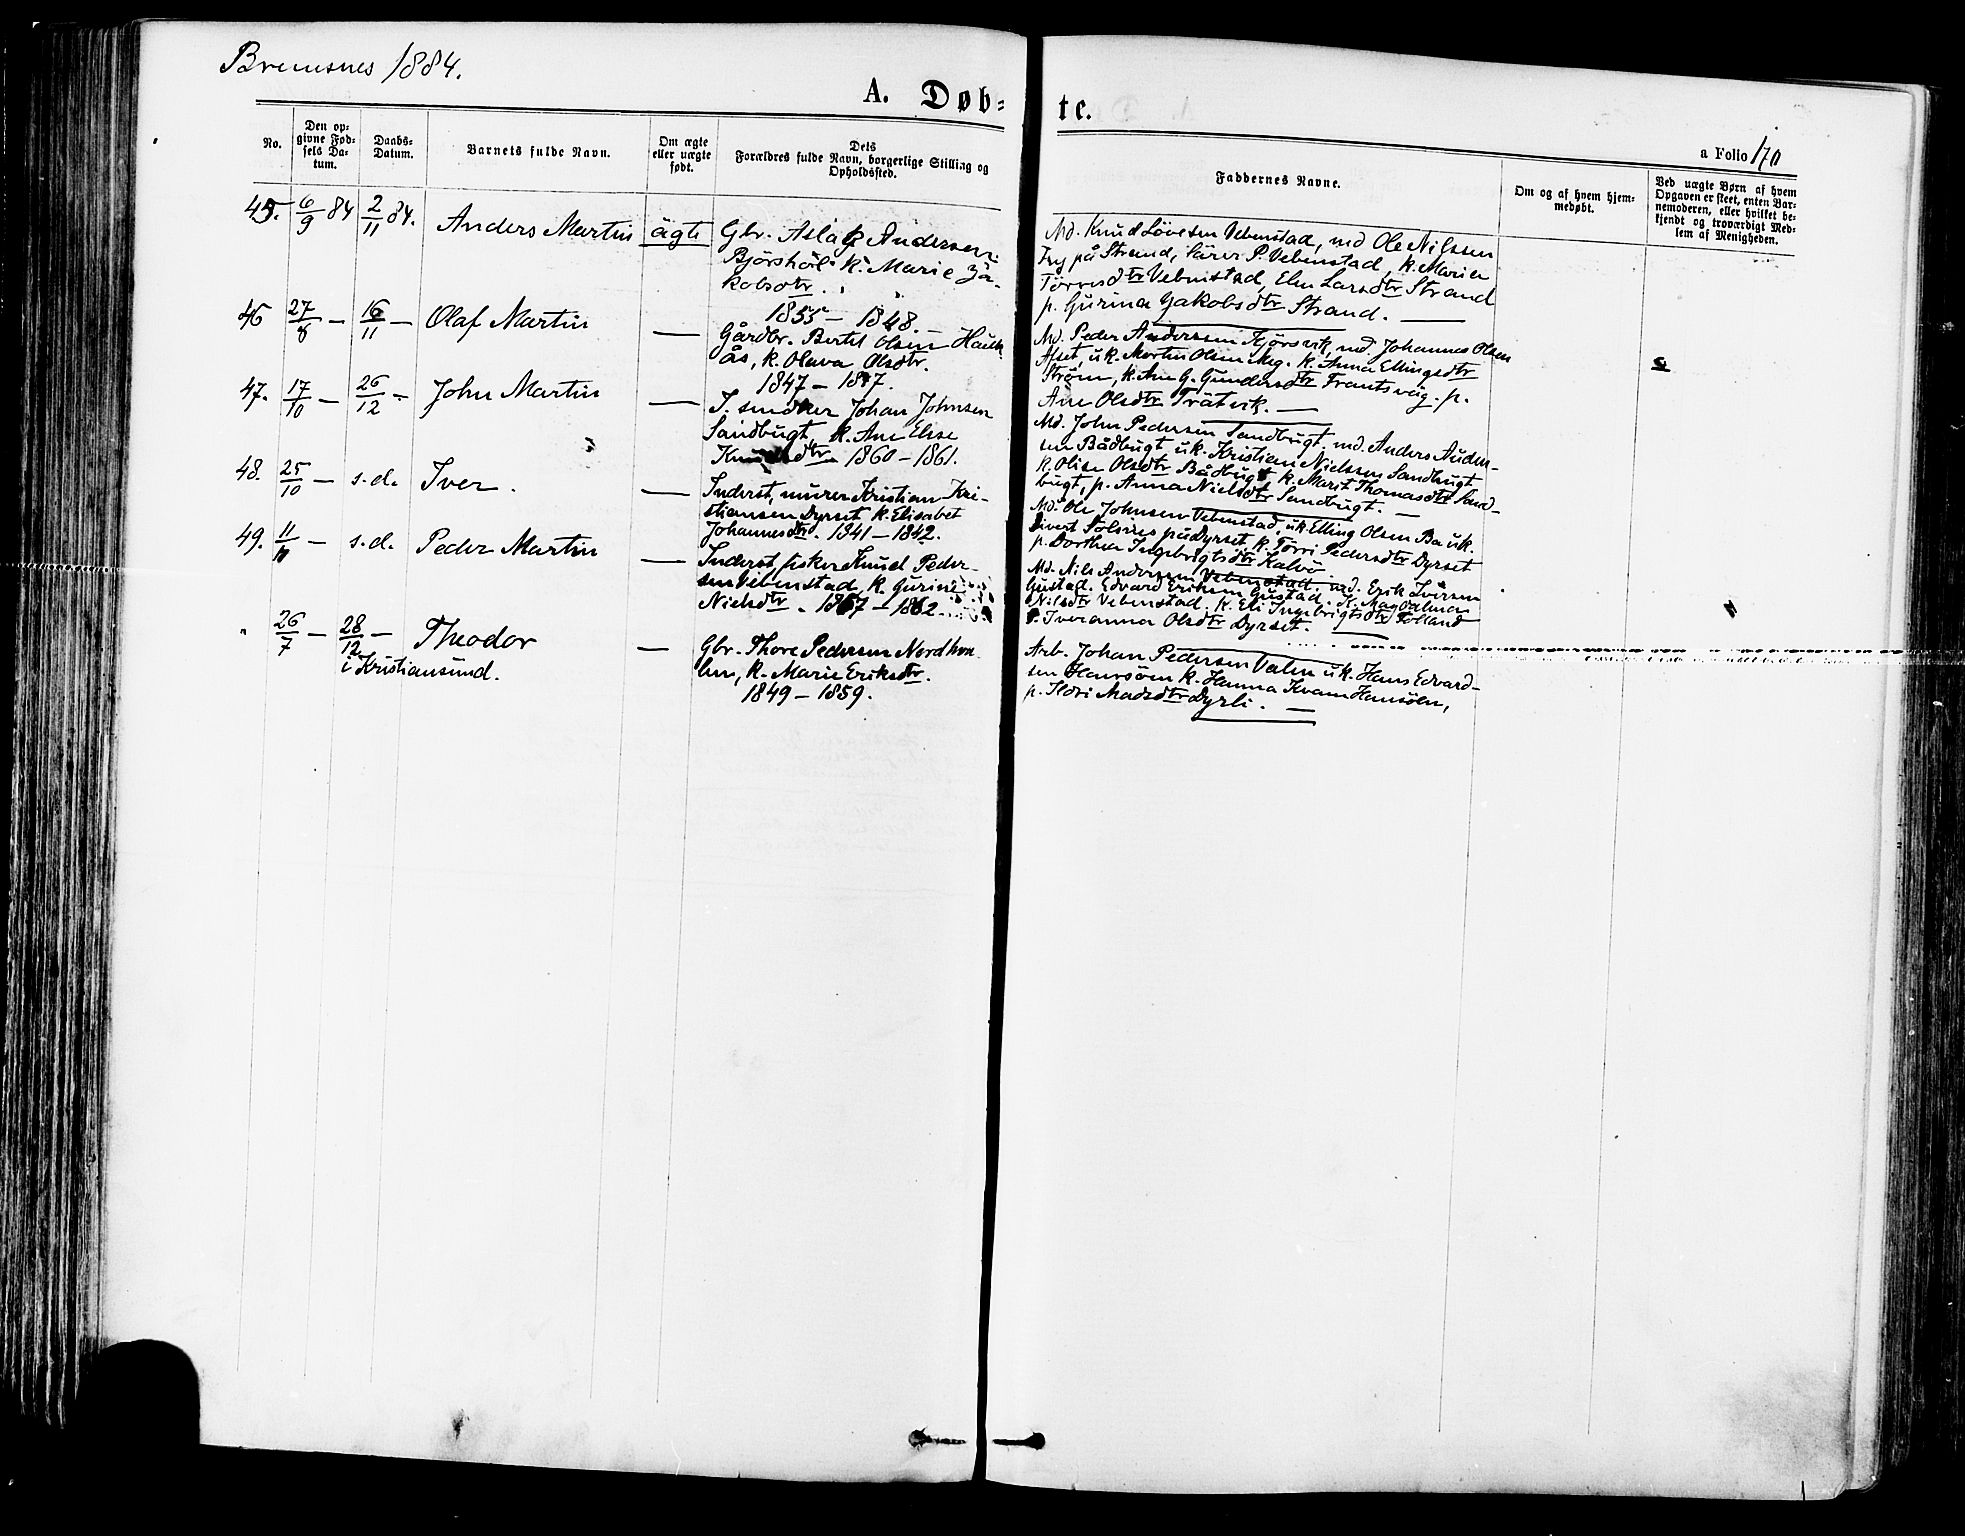 Bremsnes 1884.
A. Døb=
te.
a Folio 170
No.
Den op=
givne Fød=
sels Da=
tum.
Daabs=
Datum.
Barnets fulde Navn.
Om ægte
eller uægte
født.
Dets
Forældres fulde Navn, borgerlige Stilling og
Opholdssted.
Faddernes Navne.
Om og af hvem hjem=
medøbt.
Ved uægte Børn af hvem
Opgaven er skeet, enten Bar=
nemoderen, eller hvilket be=
kjendt og troværdigt Med=
lem af Menigheden.
45. 6/9 84 2/11 84. Anders Martin ägte
Gbr. Aslak Andersen
k. Marie Ja-
kobsdtr.
1855 - 1848.
Md. Knud Løvesen Vebenstad, md Ole Nilssen
Fry på Strand, Lärer P. Vebenstad, k. Maria
Vebenstad, Elen Larsdtr Strand
p. Gurina Jakobsdtr Strand.
46 27/8 - 16/11 - Olaf Martin -
Gårdbr. Bertel Olsen
ås, k. Olava Olsdtr.
Md. Peder Andersen md. Johannes Olsen
uk. Martin Olsen k. Anna Ellingsdtr
Strøm, k. Ane G. Gundersdtr p.
Ane Olsdtr
47. 17/10 - 26/12 - John Martin -
Johan Johnsen
Sandbugt, k. Ane Elise
Knudsdtr 1860 - 1861.
Md. John Pedersen Sandbugt, md. Anders Anders-
sen Bådbugt uk. Kristian Nielssen Sandbugt
k. Olise Olsdtr Bådbugt k. Marit Thomasdtr Sand-
bugt, p. Anna Nielsdtr Sandbugt.
48. 25/10 - s.d. Iver. -
Inderst, murer Kristian Kri-
stiansen Dyrset k. Elisabet
Johannesdtr. 1841 - 1842.
Md. Ole Johnsen Vebenstad, uk. Elling Olsen uk.
på Dyrset k. Pedersdtr Dyrset
p. Dorthea Ingebrigtsdtr Kalvø
49. 11/11 - s.d. Peder Martin -
Inderst, fisker Knud Peder-
sen Vebenstad, k. Gurine
Nielsdtr. 1862
Md. Nils Andersen Vebenstad. md. Erik Iversen
Gustad. Edvard Eriksen Gustad. k. Magdalena
Nilsdtr Vebenstad. k. Eli Ingebrigtsdtr Folland
p. Iveranna Olsdtr Dyrset.
" 26/7 - 28/12 - Theodor -
i Kristiansund.
Gbr. Thore Pedersen Nordhva-
len, k. Marie Eriksdtr.
1849 - 1859.
Arb. Johan Pedersen Valen uk. Hans Edvard-
sen k. Hanna Kvam
p. Ildri Madsdtr Dyrli.